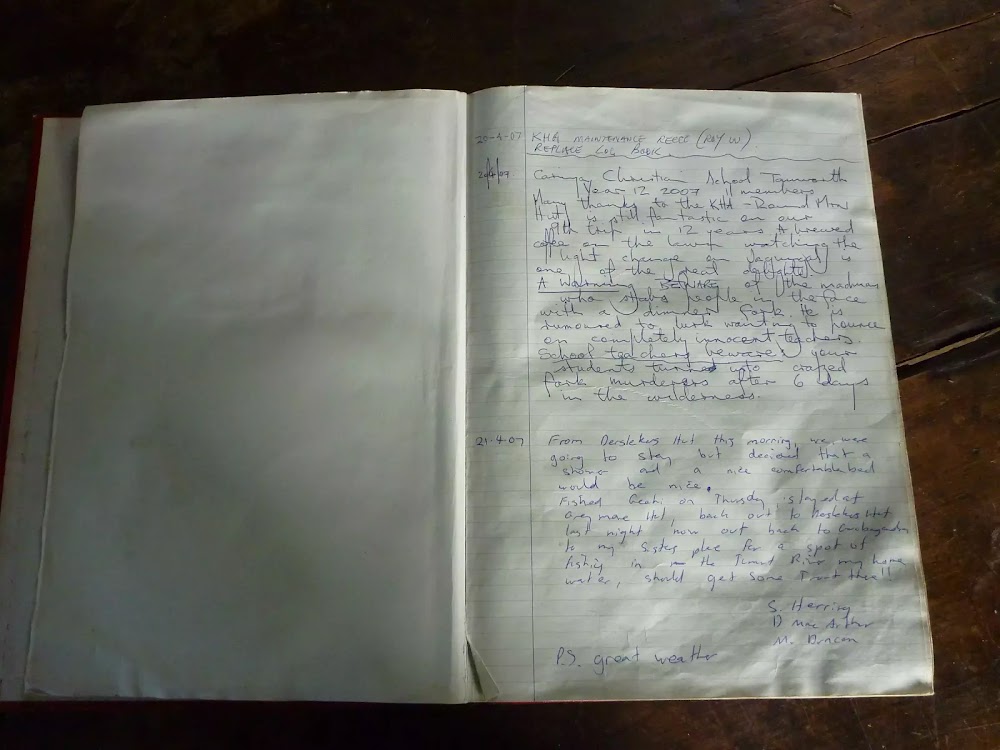 20-4-07 KHA MAINTENANCE REECE (RAY W)
REPLACE LOG BOOK
20/4/07 Christian School Tamworth
Year 12 2007 11 members
Many thanks to the KHA - Round Mtn
Hut is still fantastic on our
9th trip in 12 years A brewed
cofee on the lawn watching the
light change on Jagungal is
one of the great delights
A Warning BEWARE of the madman
who stabs people in the face
with a dinner fork. He is
rumoured to lurk wanting to pounce
on completely innocent teachers.
School teachers beware: your
students turned into crazed
fork murderers after 6 days
in the wilderness.
21.4.07 From Derslekos Hut this morning, we were
going to stay but decided that a
and a nice comfortable bed
would be nice.
Fished Geehi on Thursday, stayed at
Grey mare Hut, back out to Hut
last night now out back to
to my sisters place for a spot of
fishing in the Tumut River my home
water, should get some Trout there!!
S. Herring
D MacArthur
M.
P.S. great weather